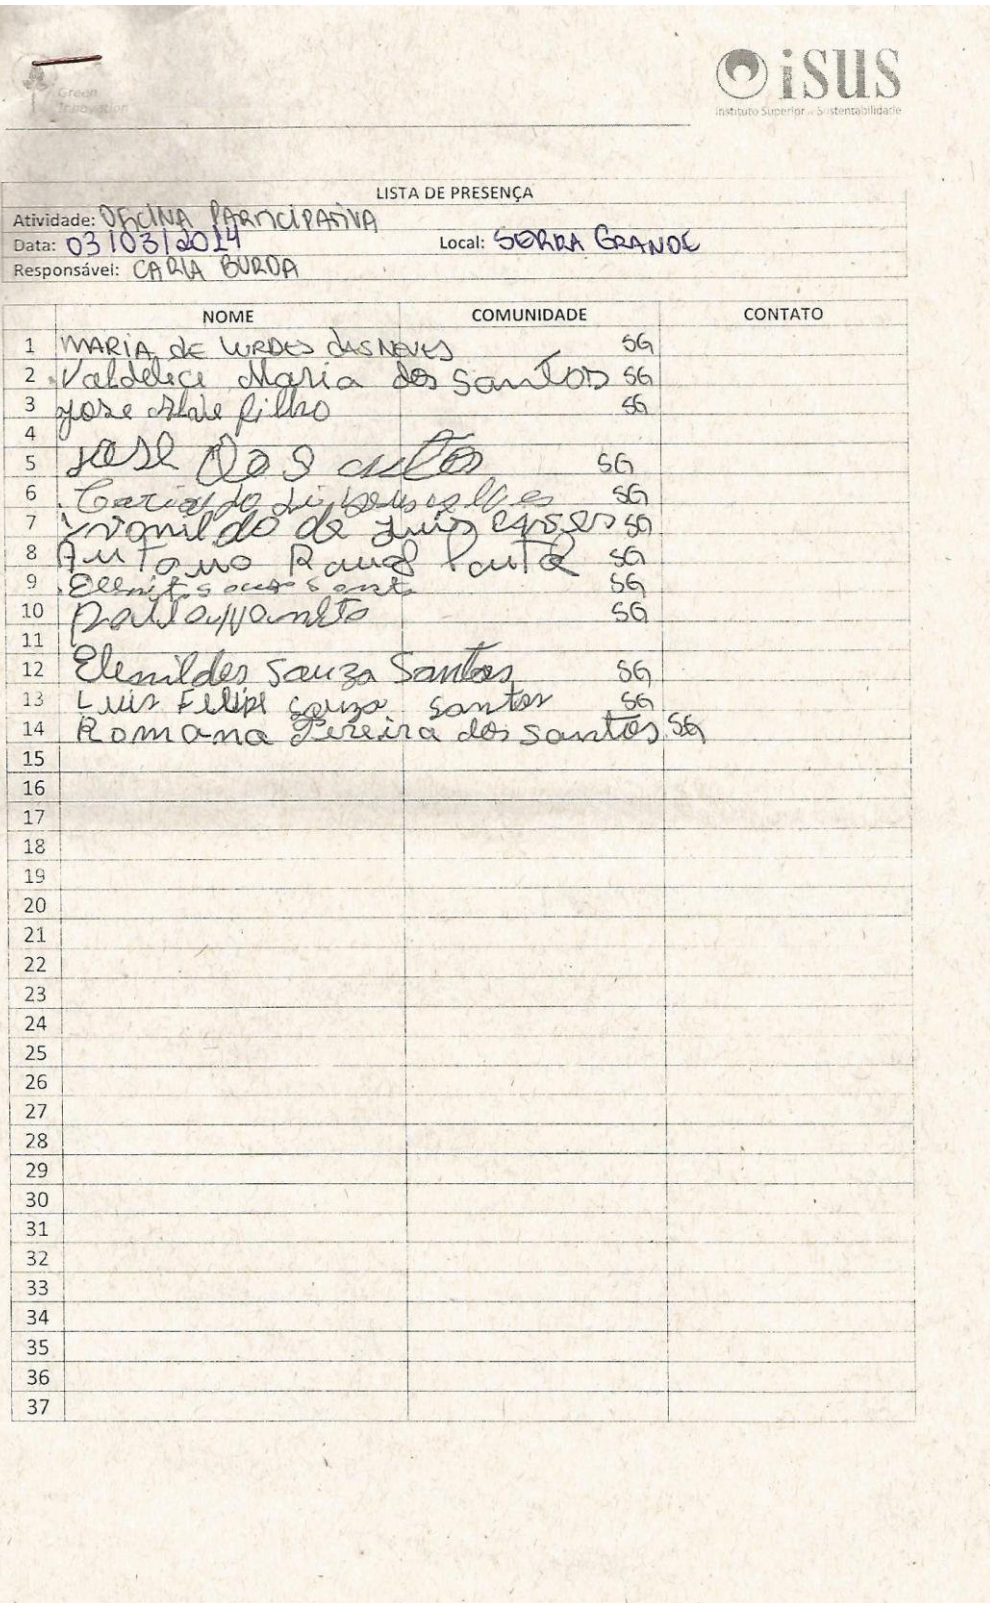 Green
Innovation
isus
Instituto Superior de Sustentabilidade
LISTA DE PRESENÇA
Atividade: OFICINA PARTICIPATIVA
Data: 03/03/2014 Local: SERRA GRANDE
Responsável: CARLA BURDA
NOME COMUNIDADE CONTATO
1 MARIA DE LURDES DAS NEVES SG
2 Valdelice Maria dos Santos SG
3 Jose filho SG
4
5 José dos SG
6 SG
7 de Luis SG
8 Antonio SG
9 SG
10 SG
11
12 Elenildes Souza Santos SG
13 Luis Felipe souza santos SG
14 Romana Pereira dos santos SG
15
16
17
18
19
20
21
22
23
24
25
26
27
28
29
30
31
32
33
34
35
36
37